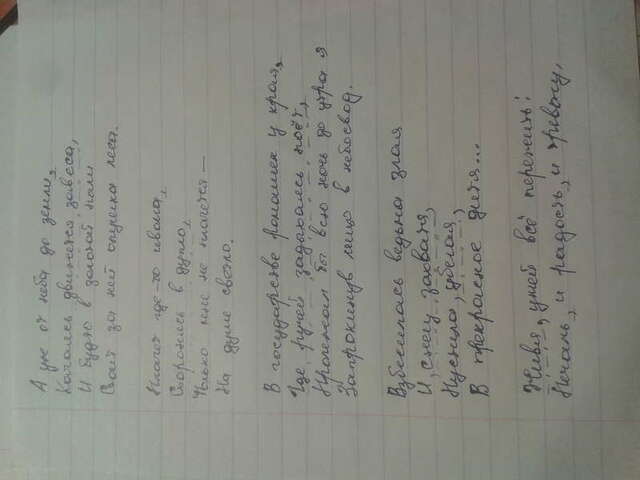 А уже от неба до земли,
Качаясь, движется завеса,
И будто в золотой пыли
Стоит за ней опушка леса.
Плачет где-то иволга,
Схоронясь в дупло,
Только мне не плачется —
На душе светло.
В государстве ромашек у края,
Где ручей, задыхаясь, поёт,
Пролежал бы всю ночь до утра я
Запрокинув лицо в небосвод.
Взбесилась ведьма злая
И, снегу захватя,
Пустила, убегая,
В прекрасное дитя...
Живя, умей всё пережить:
Печаль, и радость, и тревогу.